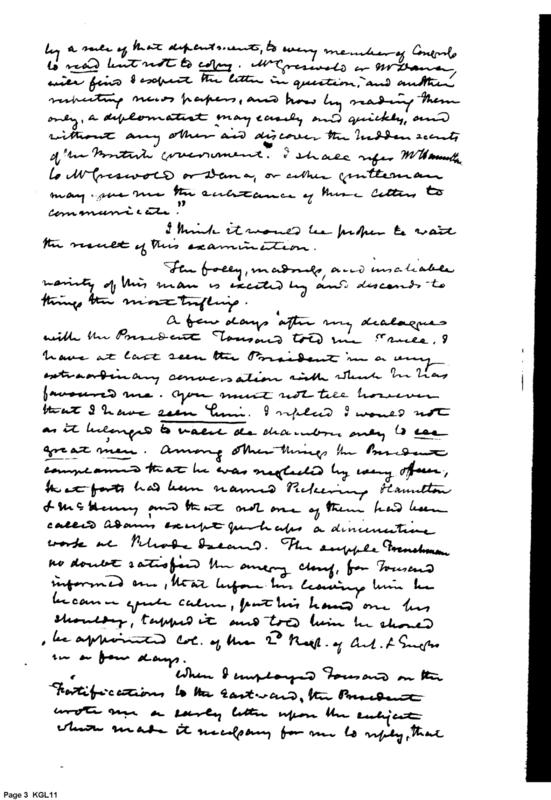 by a rule of that department, to every member of Congress
to read but not to copy. Mr Griswold or Mr Dana,
will find I expect the letter in question, and another
respecting news papers, and how by reading them
only, a diplomatist may easily and quickly, and
without any other aid discover the hidden secrets
of the British government. I shall refer Mr Hamilton
to Mr Griswold or Dana, or either gentleman
may give me the substance of these letters to
communicate."
I think it would be proper to wait
the result of this examination.
The folly, madness, and insatiable
vanity of this man is excited by and descends to
things the most trifling.
A few days after my dialogue
with the President Tousard told me "well, I
have at last seen the President in a very
extraordinary conversation with which he has
favoured me. You must not tell however
that I have seen him. I replied I would not
as it belonged to valet de chambres only to see
great men. Among other things the President
complained that he was neglected by every officer,
that forts had been named Pickering Hamilton
& McHenry and that not one of them had been
called Adams except perhaps a diminutive
work at Rhode Island. The supple Frenchman
no doubt satisfied the angry chief, for Tousard
informed me, that before his leaving him he
became quite calm, put his hand one his
shoulder, tapped it and told him he should
be appointed Col. of the 2d Regt. of Art. & Engrs
in a few days.
When I employed Tousard on the
Fortifications to the Eastward, the President
wrote me a letter upon the subject
which made it necessary for me to reply, that
Page 3 KGL11